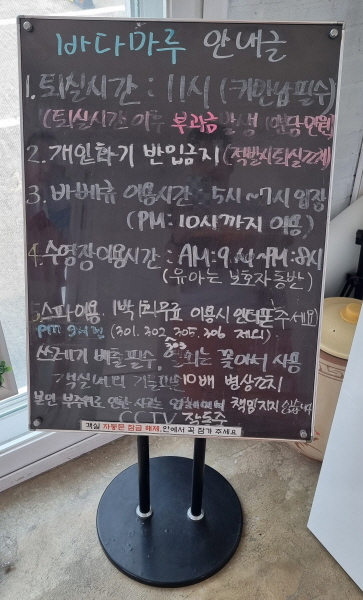 바다마루 안내글
1. 퇴실시간 : 11시 (키반납필수)
(퇴실시간 이후 부과금 발생
2. 개인화기 반입금지 (적발시퇴실조치)
3. 바베큐 이용시간 : 5시~7시 입장
(PM: 10시까지 이용)
4. 수영장이용시간 : AM: 9시~PM: 8시
(유아는 보호자 동반)
스파이용 1박1회무료 이용시 인터폰주세요)
(301. 302. 305. 306 제외)
쓰레기 배출필수, 꽂아서 사용
10배 변상조치
본인 부주의로 책임지지 않습니다
CCTV 작동중
객실 자동문 잠금 해제, 안에서 꼭 잠가 주세요